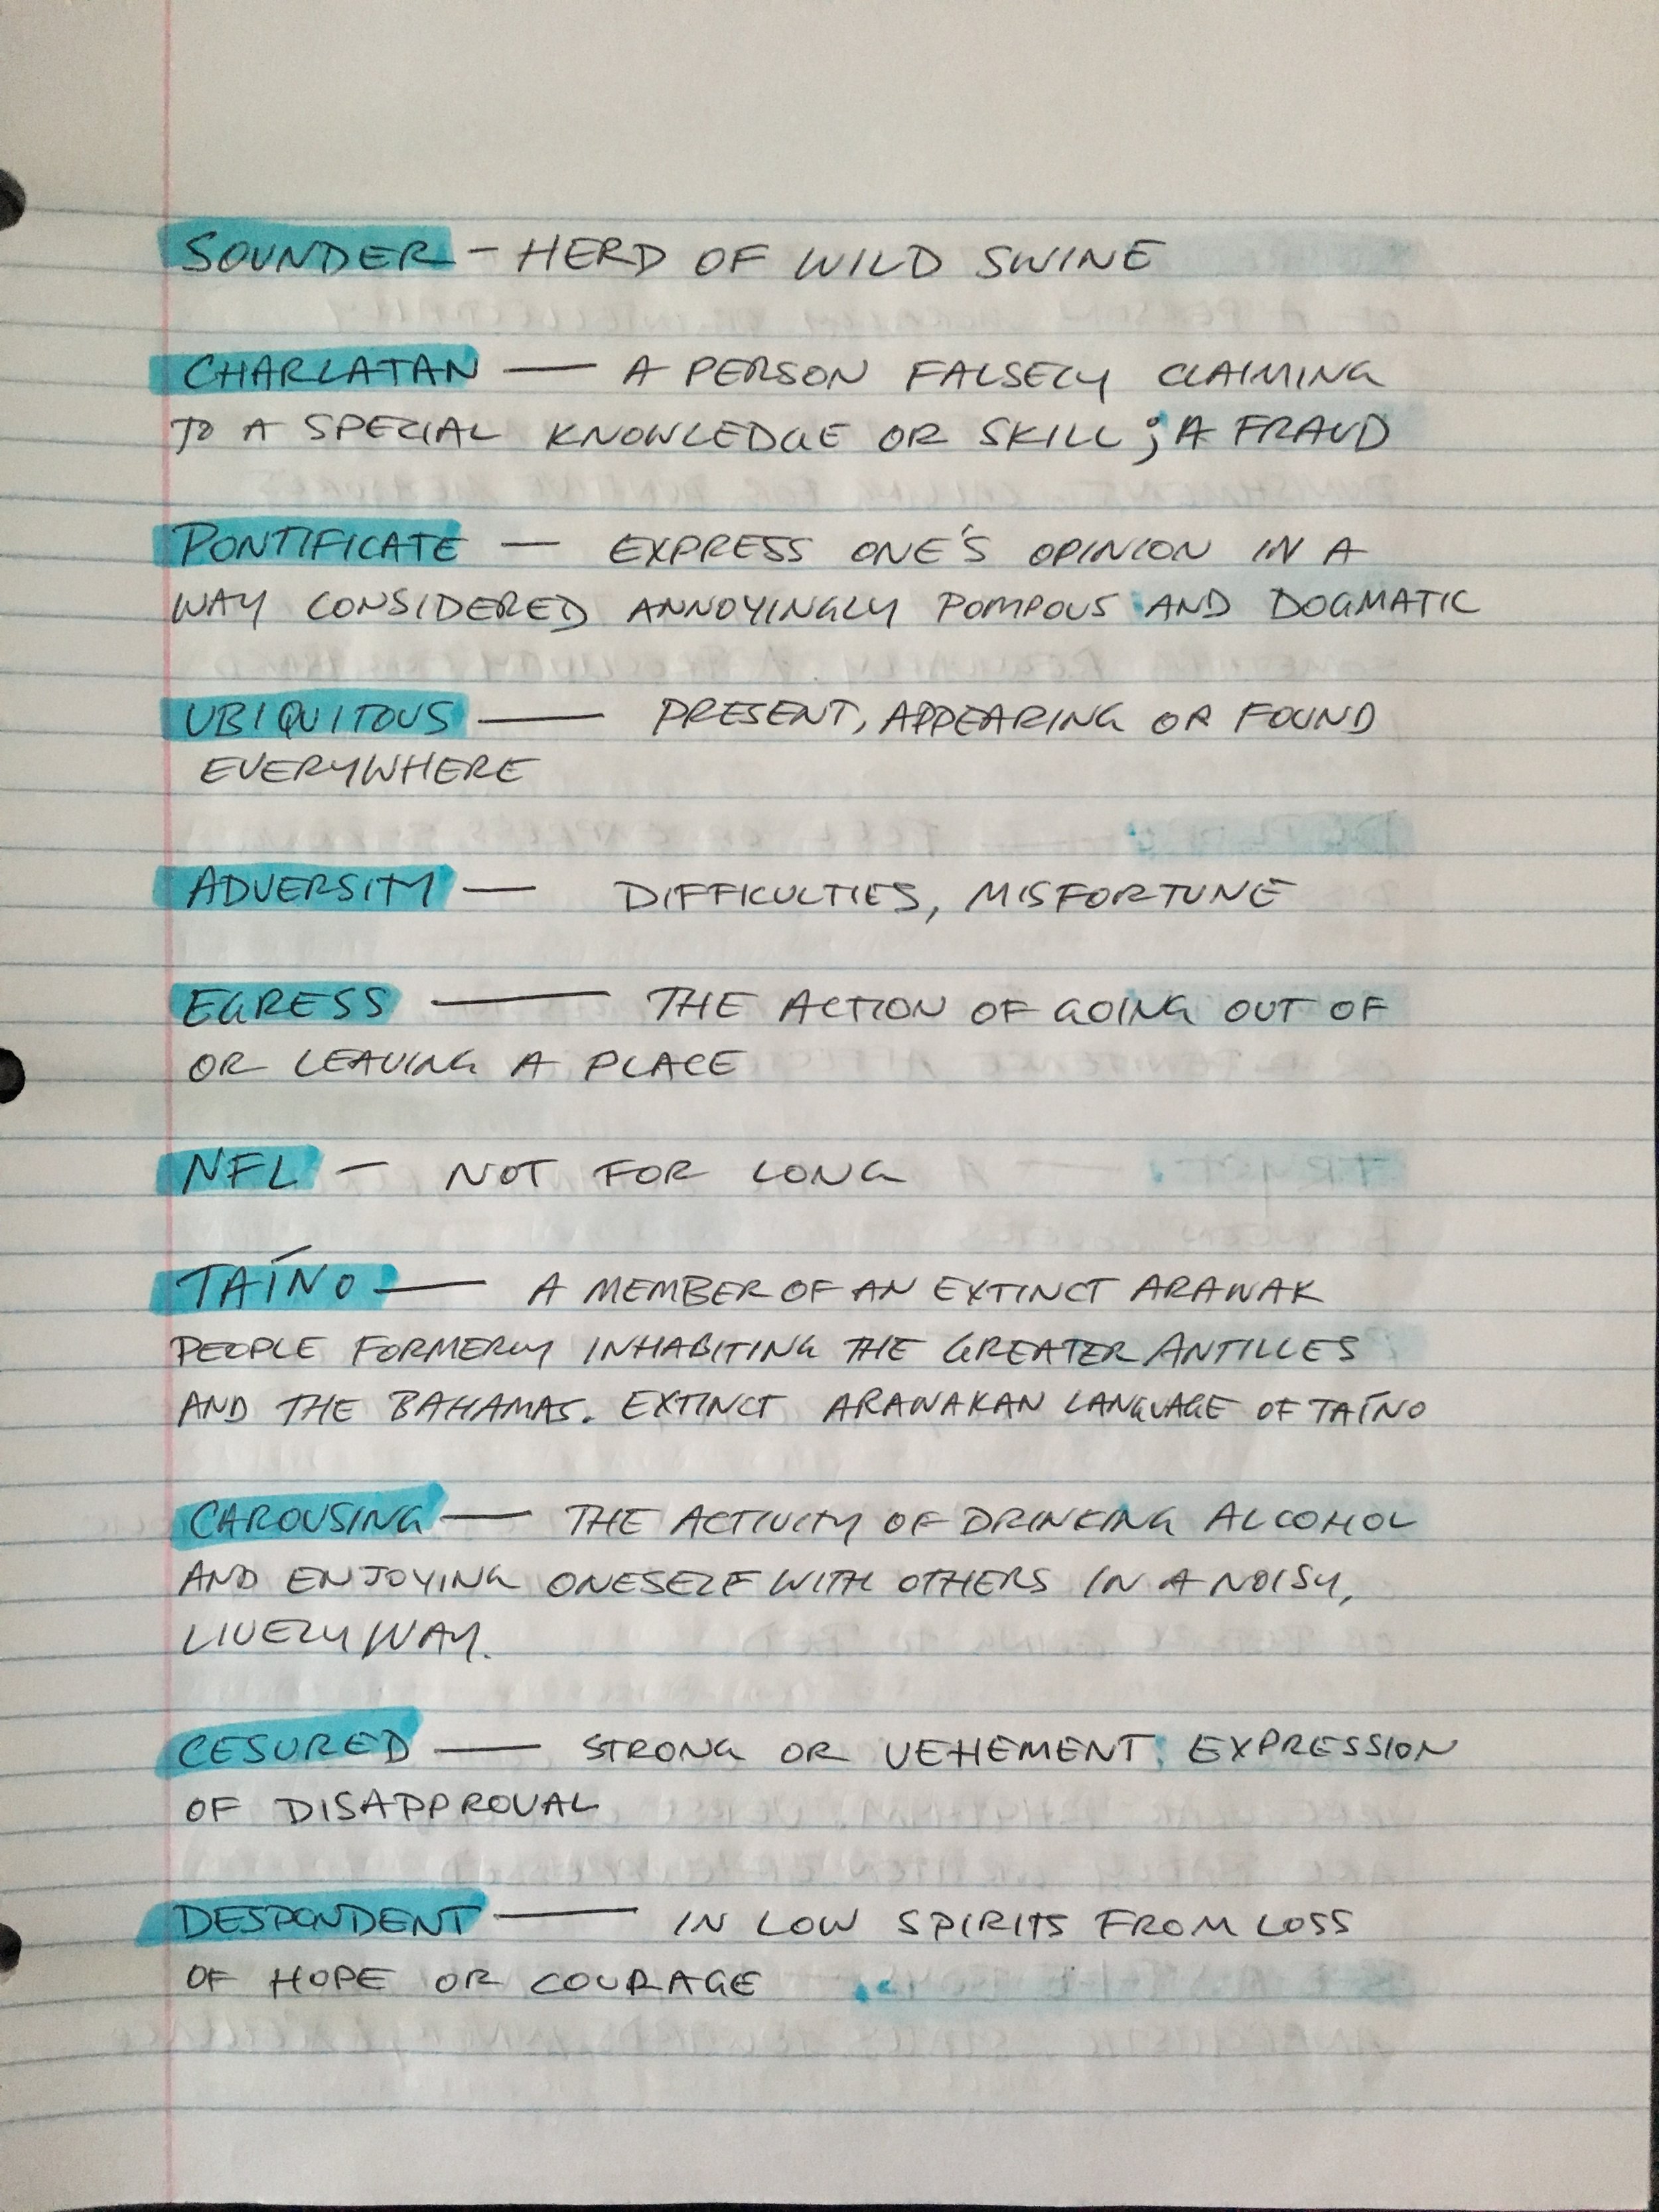 SOUNDER - HERD OF WILD SWINE
CHARLATAN — A PERSON FALSELY CLAIMING
TO A SPECIAL KNOWLEDGE OR SKILL; A FRAUD
PONTIFICATE — EXPRESS ONE'S OPINION IN A
WAY CONSIDERED ANNOYINGLY POMPOUS AND DOGMATIC
UBIQUITOUS — PRESENT, APPEARING OR FOUND
EVERYWHERE
ADVERSITY — DIFFICULTIES, MISFORTUNE
EGRESS — THE ACTION OF GOING OUT OF
OR LEAVING A PLACE
NFL — NOT FOR LONG
TAÍNO — A MEMBER OF AN EXTINCT ARAWAK
PEOPLE FORMERLY INHABITING THE GREATER ANTILLES
AND THE BAHAMAS. EXTINCT ARAWAKAN LANGUAGE OF TAÍNO
CAROUSING — THE ACTIVITY OF DRINKING ALCOHOL
AND ENJOYING ONESELF WITH OTHERS IN A NOISY,
LIVELY WAY.
CESURED — STRONG OR VEHEMENT EXPRESSION
OF DISAPPROVAL
DESPONDENT — IN LOW SPIRITS FROM LOSS
OF HOPE OR COURAGE